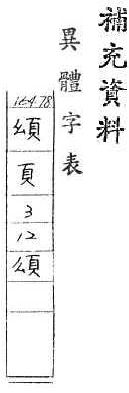 補充資料
異體字表
1164.78
頌
頁
3
12
頌